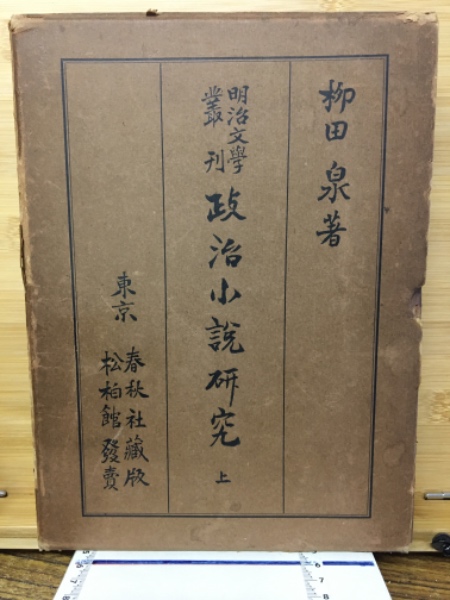 柳田泉著
明治文學
叢刊
政治小說研究 上
東京
春秋社藏版
松柏館發賣
5
6
7
8